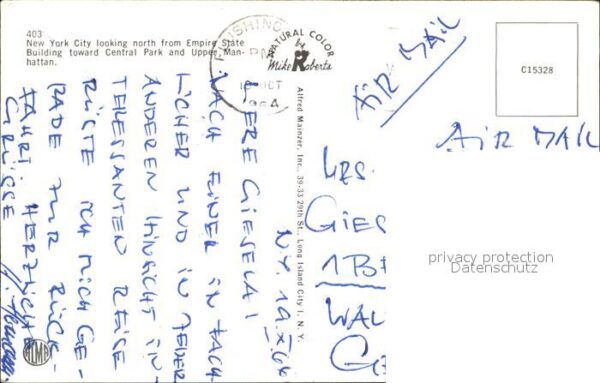 403
New York City looking north from Empire State
Building toward Central Park and Upper Man-
hattan.
FLUSHING
PM
OCT
1964
NATURAL COLOR
by
Mike Roberts
C15328
AIR MAIL
AIR MAIL
Alfred Mainzer, Inc., 39-33 29th St., Long Island City 1, N. Y.
N.Y. 19.X.64
LIEBE GIESELA!
NACH EINER IN FACH-
LICHER UND IN JEDER
ANDEREN HINSICHT IN-
TERESSANTEN REISE
RÜSTE ICH MICH GE-
RADE ZUR RÜCK-
FAHRT. HERZLICHE
GRÜSSE
MRS.
GIES
1 BE
WAL
privacy protection
Datenschutz